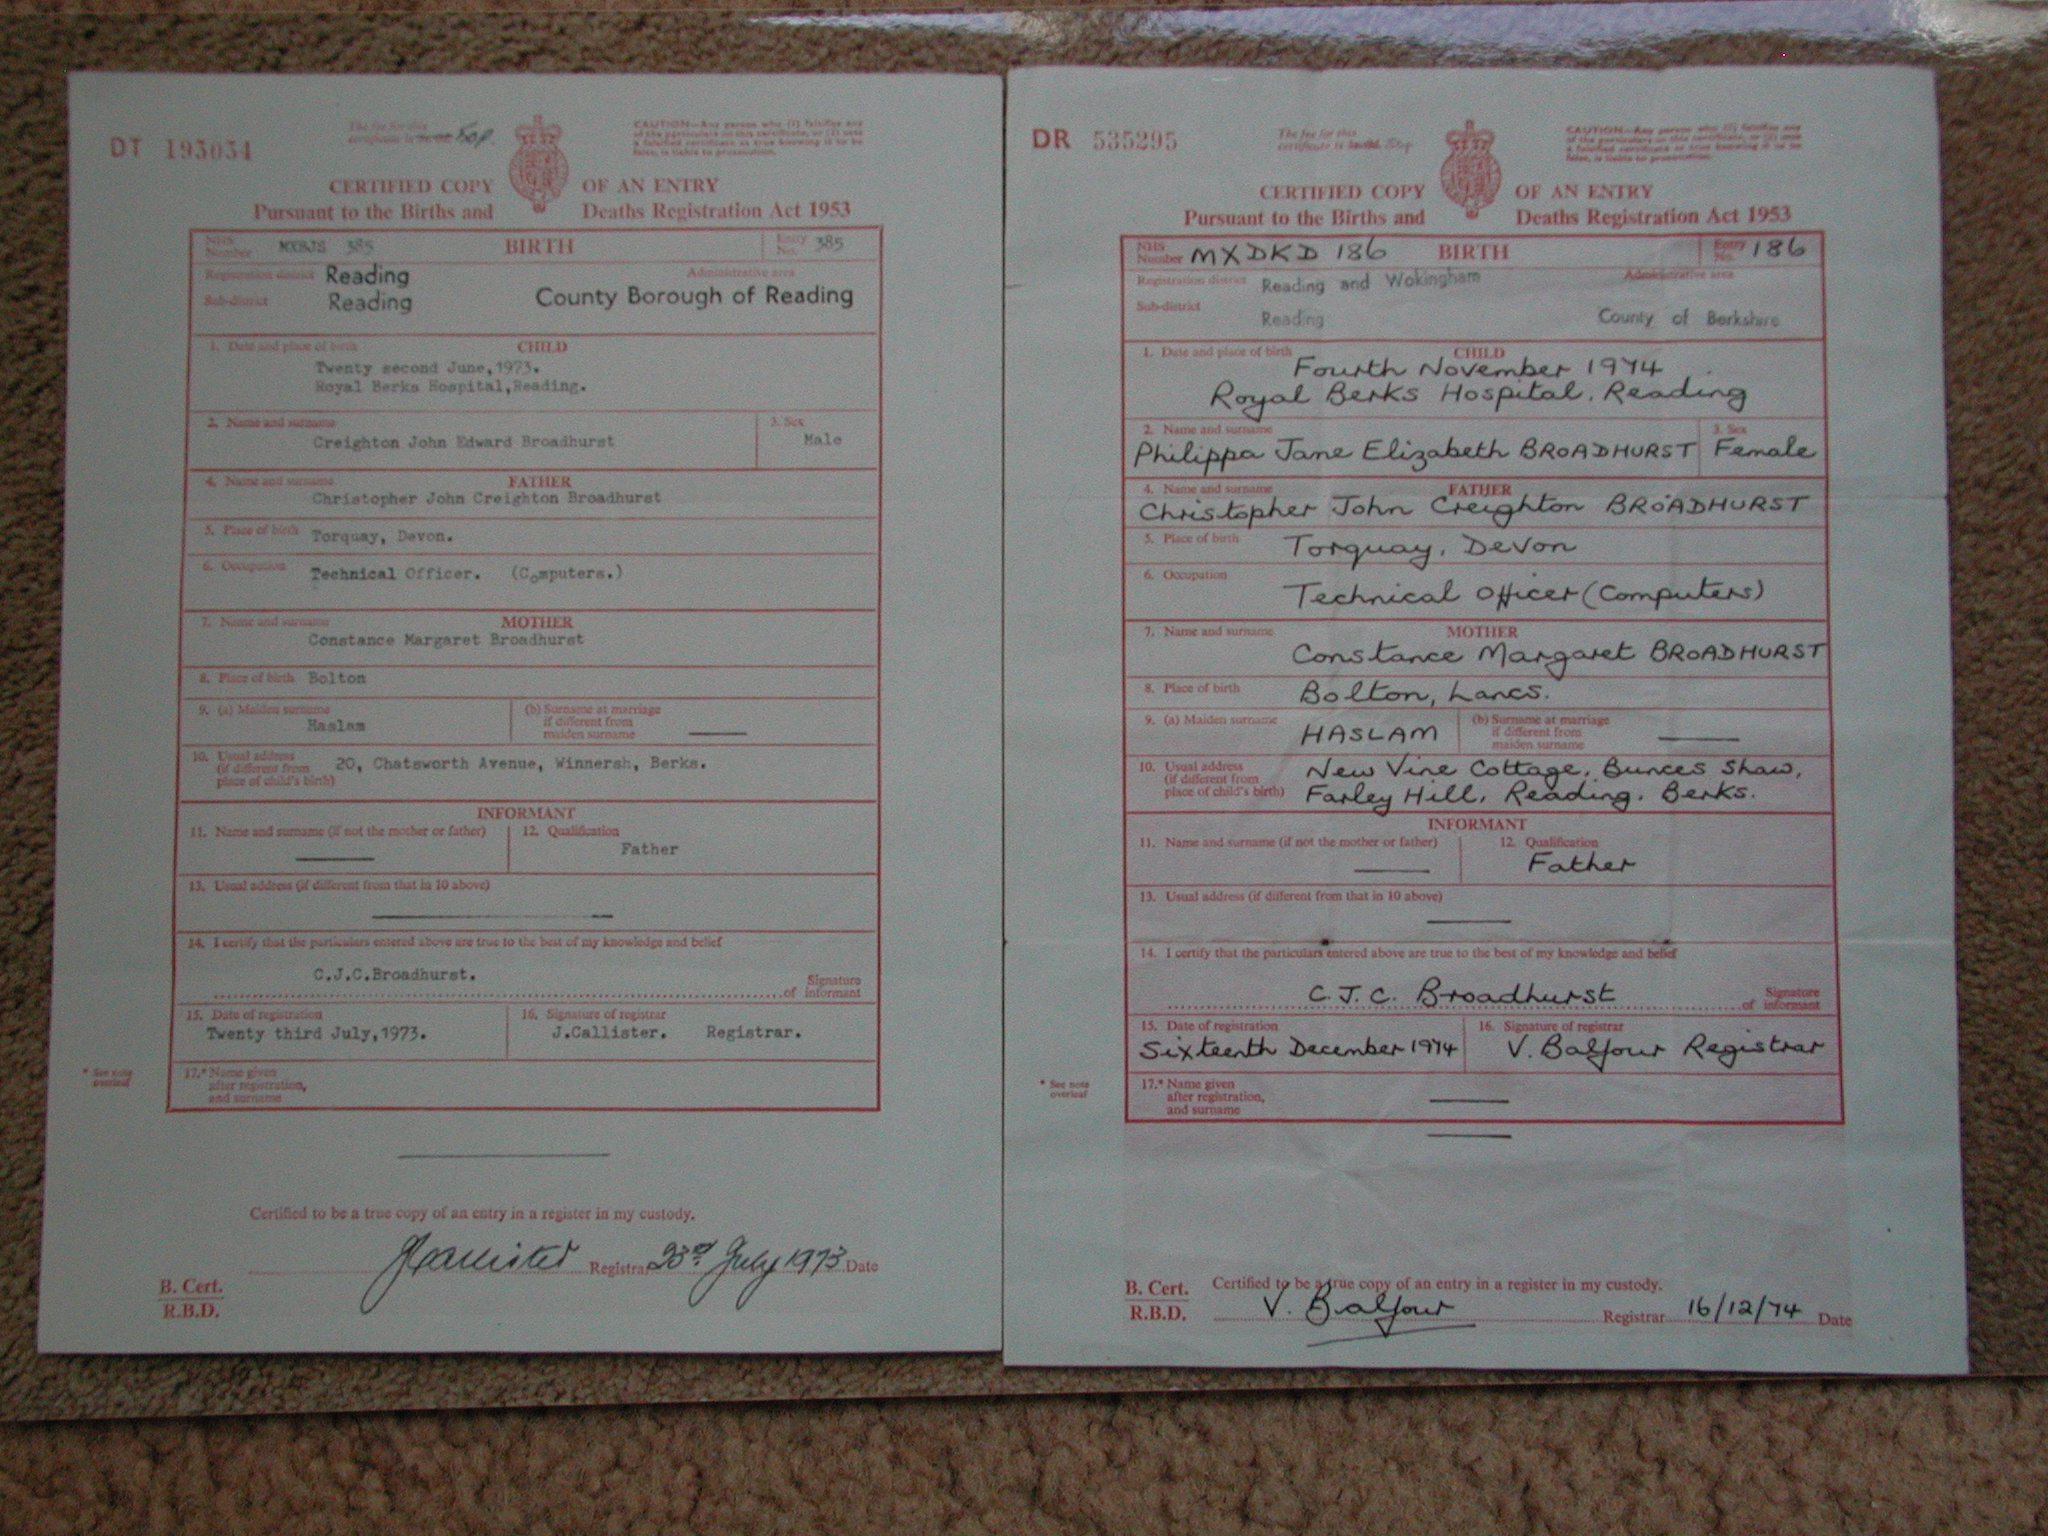 DT 193034
The fee for this
certificate is 50p.
CAUTION—Any person who (1) falsifies any
of the particulars on this certificate, or (2) uses
a falsified certificate as true knowing it to be
false, is liable to prosecution.
CERTIFIED COPY OF AN ENTRY
Pursuant to the Births and Deaths Registration Act 1953
NHS Number MXBJS 385 BIRTH Entry No. 385
Registration district Reading Administrative area
Sub-district Reading County Borough of Reading
1. Date and place of birth CHILD
Twenty second June,1973.
Royal Berks Hospital,Reading.
2. Name and surname 3. Sex
Creighton John Edward Broadhurst Male
4. Name and surname FATHER
Christopher John Creighton Broadhurst
5. Place of birth Torquay, Devon.
6. Occupation Technical Officer. (Computers.)
7. Name and surname MOTHER
Constance Margaret Broadhurst
8. Place of birth Bolton
9. (a) Maiden surname (b) Surname at marriage
if different from
maiden surname
Haslam
10. Usual address
(if different from
place of child's birth) 20, Chatsworth Avenue, Winnersh, Berks.
INFORMANT
11. Name and surname (if not the mother or father) 12. Qualification
Father
13. Usual address (if different from that in 10 above)
14. I certify that the particulars entered above are true to the best of my knowledge and belief
C.J.C.Broadhurst.
Signature
of informant
15. Date of registration 16. Signature of registrar
Twenty third July,1973. J.Callister. Registrar.
* See note
overleaf
17.* Name given
after registration,
and surname
Certified to be a true copy of an entry in a register in my custody.
JCallister Registrar 23rd July 1973 Date
B. Cert.
R.B.D.
DR 535295
The fee for this
certificate is
CAUTION—Any person who (1) falsifies any
of the particulars on this certificate, or (2) uses
a falsified certificate as true knowing it to be
false, is liable to prosecution.
CERTIFIED COPY OF AN ENTRY
Pursuant to the Births and Deaths Registration Act 1953
NHS Number MXDKD 186 BIRTH Entry No. 186
Registration district Reading and Wokingham Administrative area
Sub-district Reading County of Berkshire
1. Date and place of birth CHILD
Fourth November 1974
Royal Berks Hospital, Reading
2. Name and surname 3. Sex
Philippa Jane Elizabeth BROADHURST Female
4. Name and surname FATHER
Christopher John Creighton BROADHURST
5. Place of birth Torquay, Devon
6. Occupation
Technical Officer (Computers)
7. Name and surname MOTHER
Constance Margaret BROADHURST
8. Place of birth Bolton, Lancs.
9. (a) Maiden surname (b) Surname at marriage
if different from
maiden surname
HASLAM
10. Usual address
(if different from
place of child's birth)
New Vine Cottage, Bunces Shaw,
Farley Hill, Reading, Berks.
INFORMANT
11. Name and surname (if not the mother or father) 12. Qualification
Father
13. Usual address (if different from that in 10 above)
14. I certify that the particulars entered above are true to the best of my knowledge and belief
C. J. C. Broadhurst
Signature
of informant
15. Date of registration 16. Signature of registrar
Sixteenth December 1974 V. Balfour Registrar
* See note
overleaf
17.* Name given
after registration,
and surname
B. Cert.
R.B.D.
Certified to be a true copy of an entry in a register in my custody.
V. Balfour Registrar 16/12/74 Date